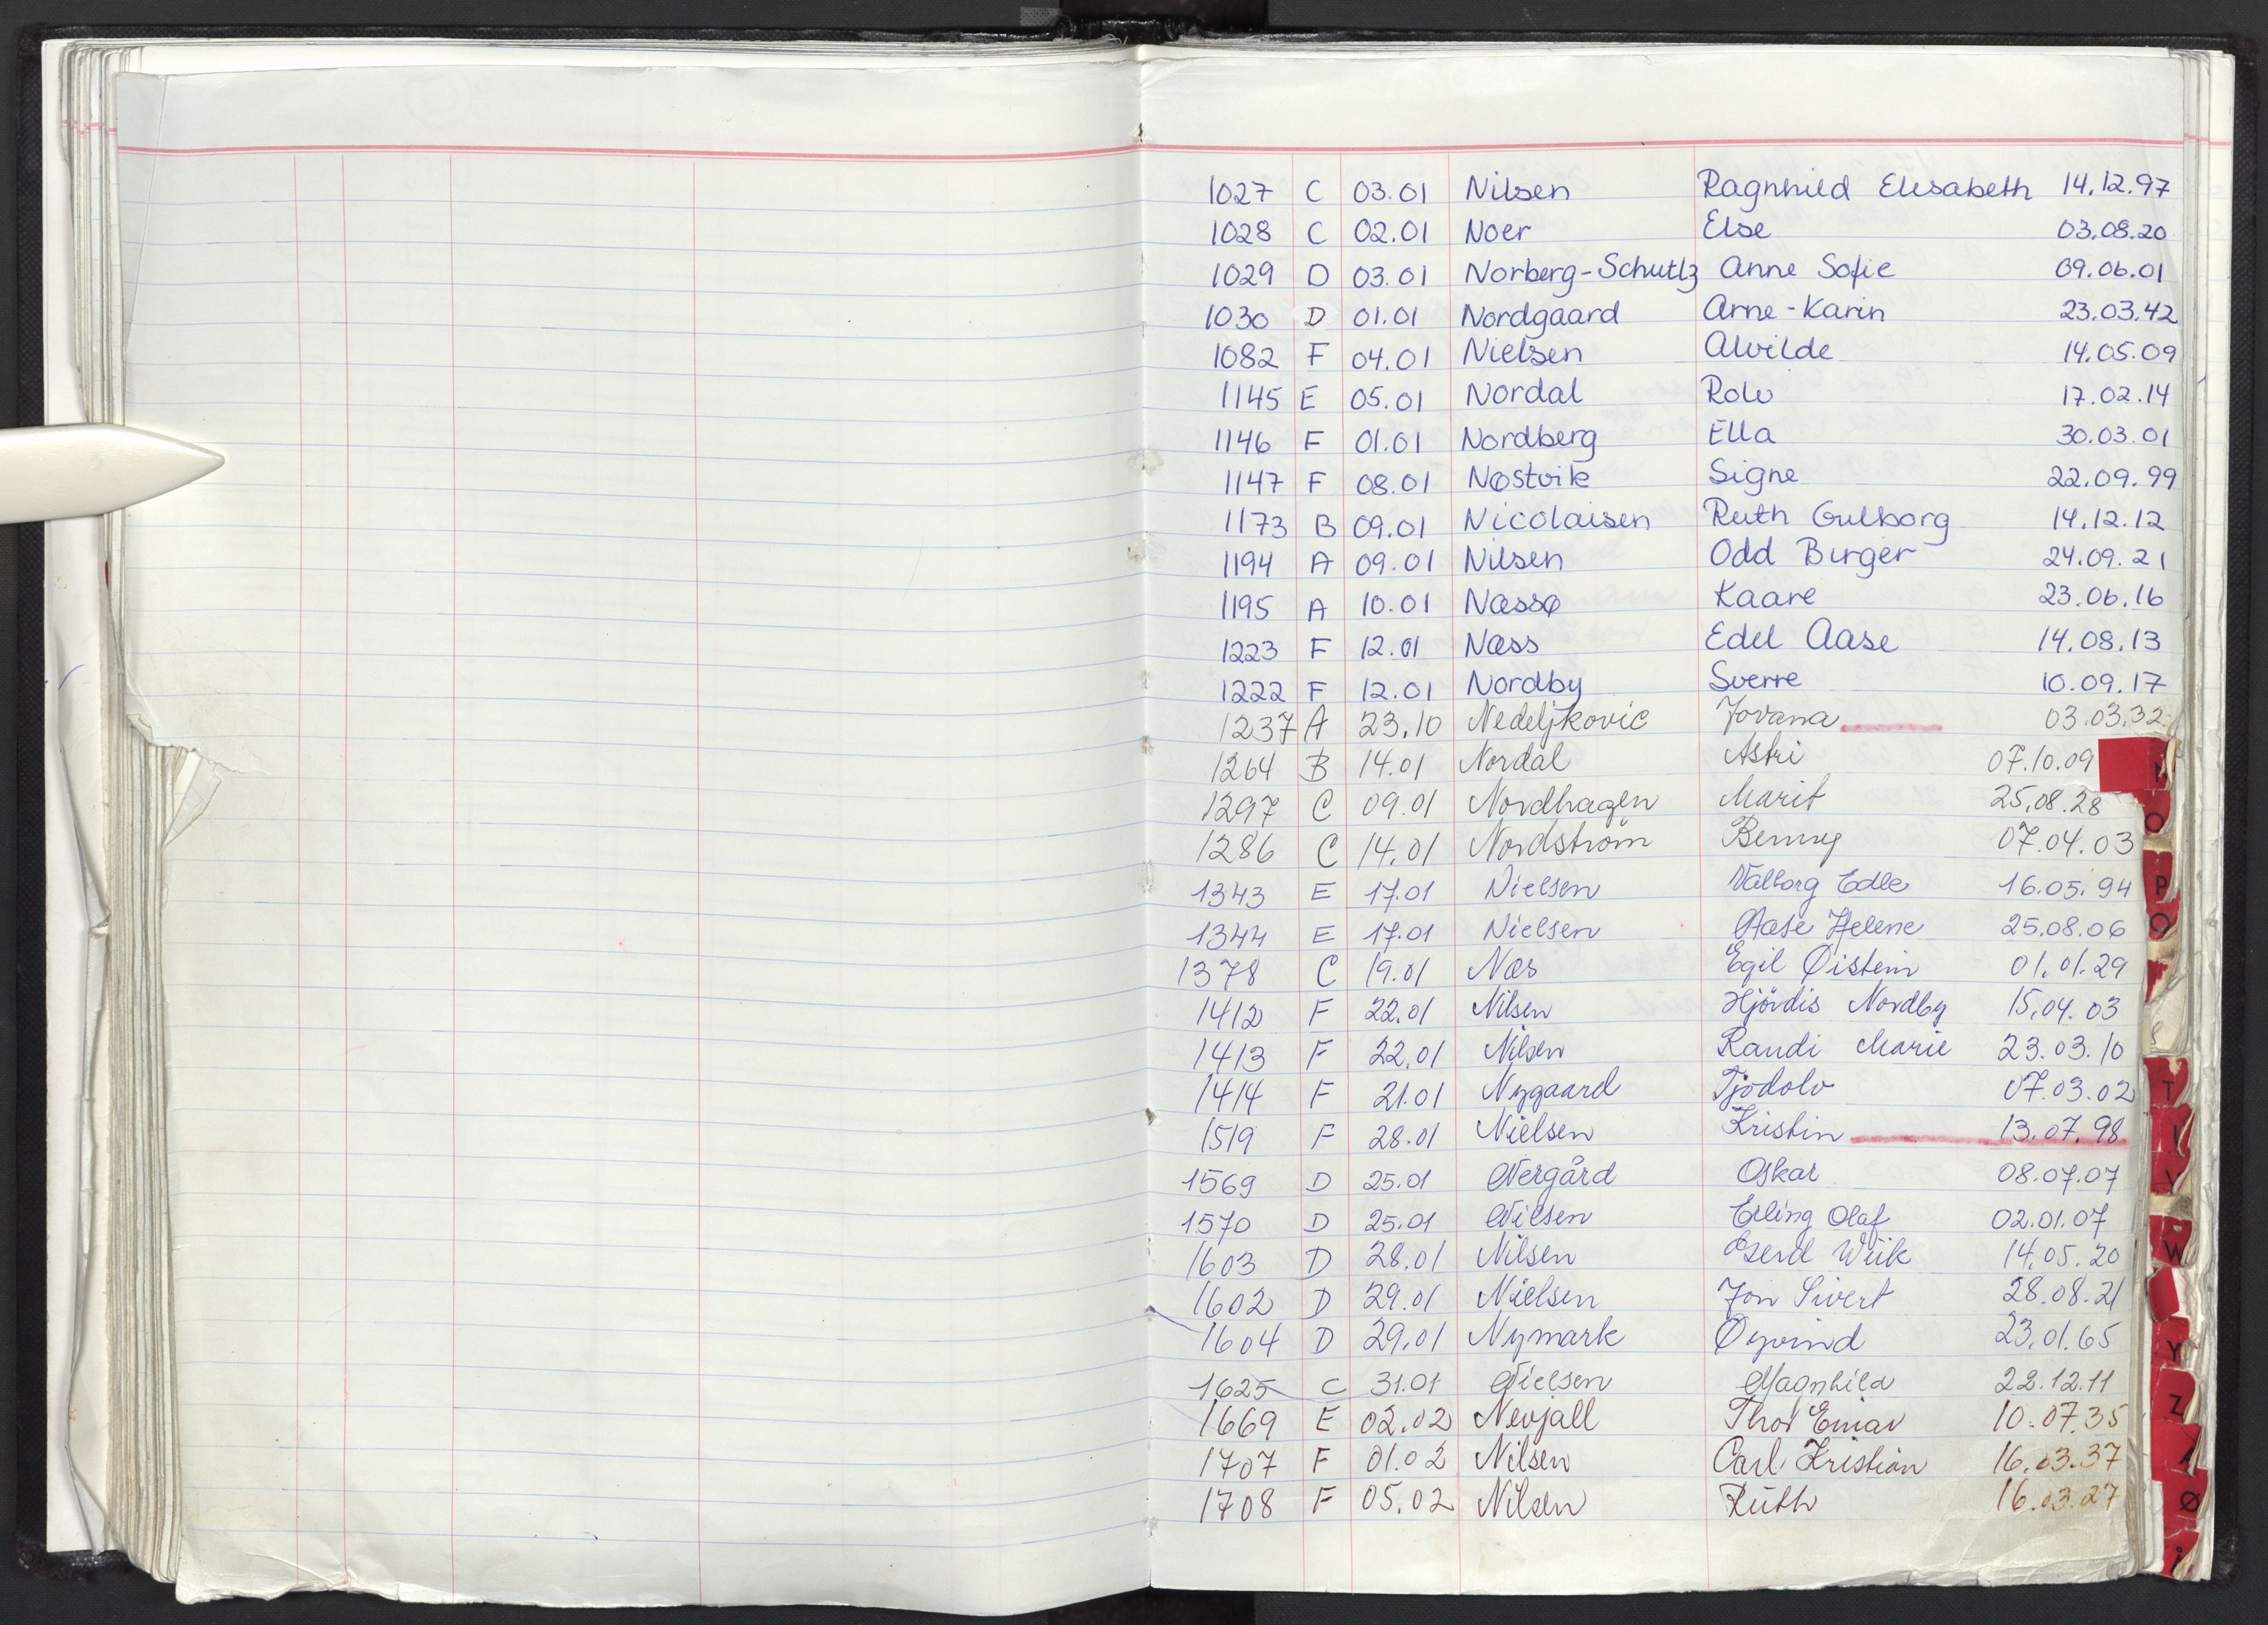 1027 C 03.01 Nilsen Ragnhild Elisabeth 14.12.97
1028 C 02.01 Noer Else 03.08.20
1029 D 03.01 Norberg-Schutlz Anne Sofie 09.06.01
1030 D 01.01 Nordgaard Arne-Karin 23.03.42
1082 F 04.01 Nielsen Alvilde 14.05.09
1145 E 05.01 Nordal Rolv 17.02.14
1146 F 01.01 Nordberg Ella 30.03.01
1147 F 08.01 Nøstvik Signe 22.09.99
1173 B 09.01 Nicolaisen Ruth Gulborg 14.12.12
1194 A 09.01 Nilsen Odd Birger 24.09.21
1195 A 10.01 Næssø Kaare 23.06.16
1223 F 12.01 Næss Edel Aase 14.08.13
1222 F 12.01 Nordby Sverre 10.09.17
1237 A 23.10 Nedeljkovic Jovana 03.03.32
1264 B 14.01 Nordal Astri 07.10.09
1297 C 09.01 Nordhagen Marit 25.08.28
1286 C 14.01 Nordström Benny 07.04.03
1343 E 17.01 Nielsen Valborg Edle 16.05.94
1344 E 17.01 Nielsen Aase Helene 25.08.06
1378 C 19.01 Næs Egil Øistein 01.01.29
1412 F 22.01 Nilsen Hjördis Nordby 15.04.03
1413 F 22.01 Nilsen Randi Marie 23.03.10
1414 F 21.01 Nygaard Tjodolv 07.03.02
1519 F 28.01 Nielsen Kristin 13.07.98
1569 D 25.01 Nergård Oskar 08.07.07
1570 D 25.01 Nilsen Erling Olaf 02.01.07
1603 D 28.01 Nilsen Gerd Wiik 14.05.20
1602 D 29.01 Nielsen Jon Sivert 28.08.21
1604 D 29.01 Nymark Øyvind 23.01.65
1625 C 31.01 Nielsen Magnhild 22.12.11
1669 E 02.02 Nevjall Thor Einar 10.07.35
1707 F 01.02 Nilsen Carl Kristian 16.03.37
1708 F 05.02 Nilsen Ruth 16.03.27
O
P
Q
T
V
W
Y
Z
Ø